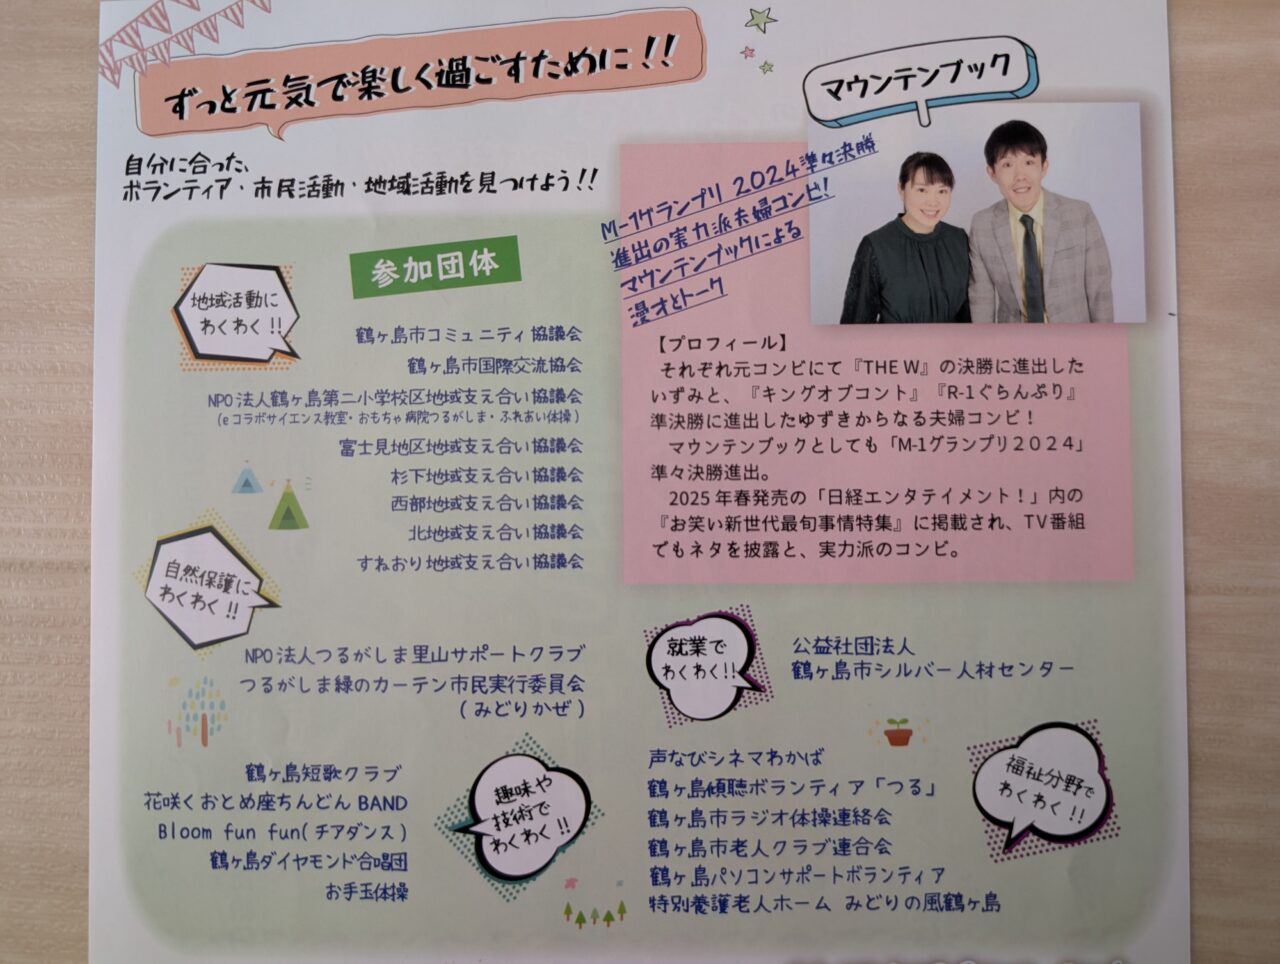 ずっと元気で楽しく過ごすために!!
自分に合った、
ボランティア・市民活動・地域活動を見つけよう!!
マウンテンブック
M-1グランプリ 2024準々決勝
進出の実力派夫婦コンビ!
マウンテンブックによる
漫才とトーク
【プロフィール】
それぞれ元コンビにて『THE W』の決勝に進出した
いずみと、『キングオブコント』『R-1ぐらんぷり』
準決勝に進出したゆずきからなる夫婦コンビ!
マウンテンブックとしても「M-1グランプリ2024」
準々決勝進出。
2025年春発売の「日経エンタテイメント!」内の
『お笑い新世代最旬事情特集』に掲載され、TV番組
でもネタを披露と、実力派のコンビ。
参加団体
地域活動に
わくわく!!
鶴ヶ島市コミュニティ協議会
鶴ヶ島市国際交流協会
NPO法人鶴ヶ島第二小学校区地域支え合い協議会
(eコラボサイエンス教室・おもちゃ病院つるがしま・ふれあい体操)
富士見地区地域支え合い協議会
杉下地域支え合い協議会
西部地域支え合い協議会
北地域支え合い協議会
すねおり地域支え合い協議会
自然保護に
わくわく!!
NPO法人つるがしま里山サポートクラブ
つるがしま緑のカーテン市民実行委員会
(みどりかぜ)
趣味や
技術で
わくわく!!
鶴ヶ島短歌クラブ
花咲くおとめ座ちんどんBAND
Bloom fun fun(チアダンス)
鶴ヶ島ダイヤモンド合唱団
お手玉体操
就業で
わくわく!!
公益社団法人
鶴ヶ島市シルバー人材センター
福祉分野で
わくわく!!
声なびシネマわかば
鶴ヶ島傾聴ボランティア「つる」
鶴ヶ島市ラジオ体操連絡会
鶴ヶ島市老人クラブ連合会
鶴ヶ島パソコンサポートボランティア
特別養護老人ホーム みどりの風鶴ヶ島